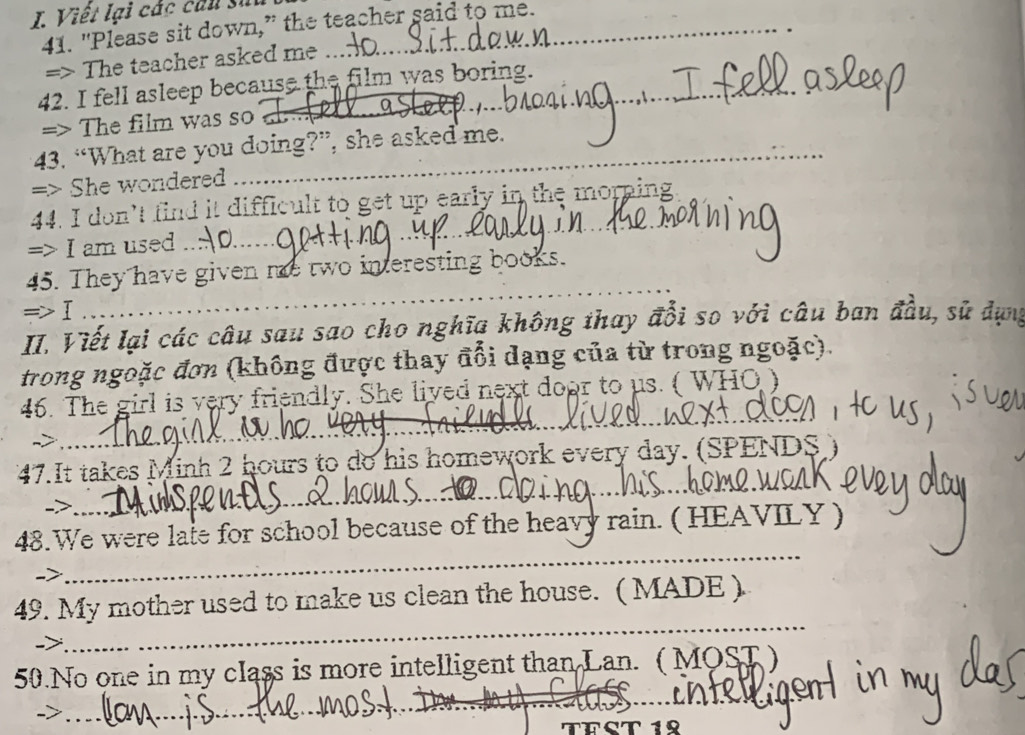 I. Viết lại các câu sau
41. "Please sit down," the teacher said to me.
=> The teacher asked me ...to.....Sit.down.....
42. I fell asleep because the film was boring.
=> The film was so I fell asleep, broring....,..I fell asleep
43. “What are you doing?”, she asked me.
=> She wondered ....................
44. I don’t find it difficult to get up early in the morning
=> I am used ..to......getting..up..early.in...the.morning
45. They have given me two interesting books.
=> I ....................
II. Viết lại các câu sau sao cho nghĩa không thay đổi so với câu ban đầu, sử dụng
trong ngoặc đơn (không được thay đổi dạng của từ trong ngoặc).
46. The girl is very friendly. She lived next door to us. ( WHO )
->......The girl who very friendly lived next door, to us, is
47.It takes Minh 2 hours to do his homework every day. (SPENDS )
->.....Minspends...2.hours...to...doing...his...homework evey day
48.We were late for school because of the heavy rain. ( HEAVILY )
->....................
49. My mother used to make us clean the house. ( MADE ).
->....................
50.No one in my class is more intelligent than Lan. ( MOST )
->....lan...is....the..most...in my class...intelligent in my clas
TEST 18